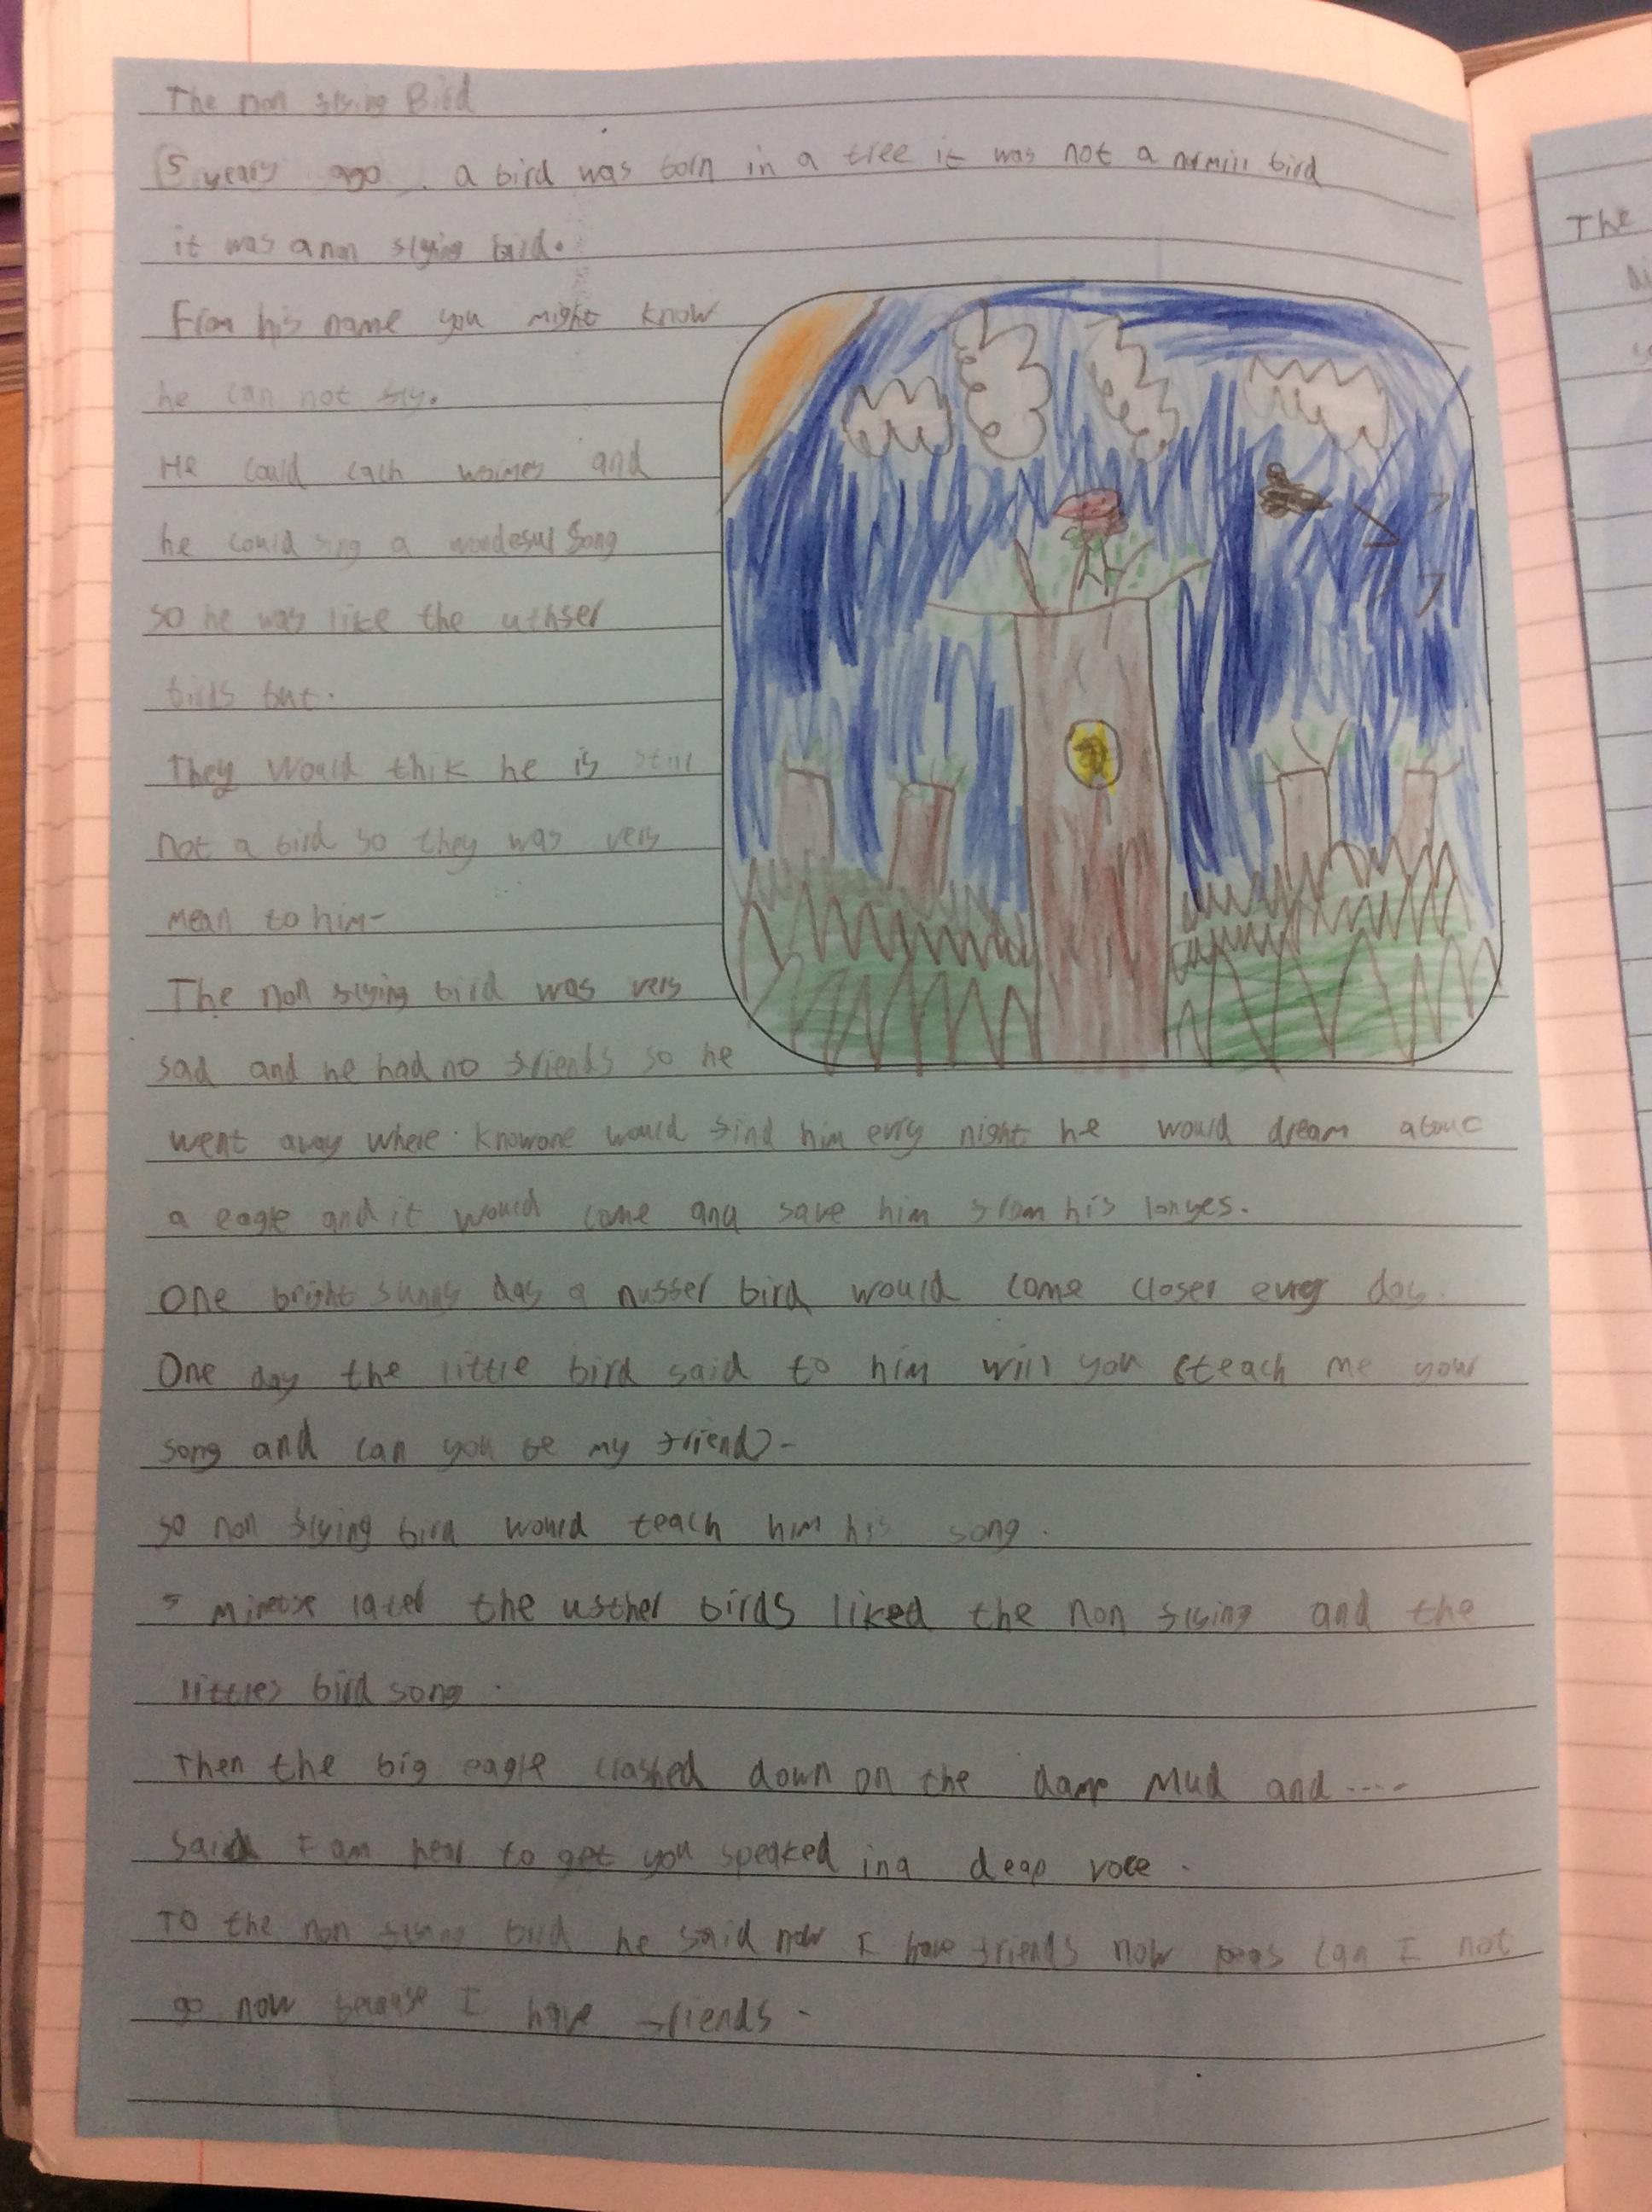 The non flying Bird
5 years ago . a bird was born in a tree it was not a normill bird
it was a non flying bird.
From his name you might know
he can not fly.
He could cach woimes and
he could sing a wondeful song
so he was like the uthfer
birds but.
They would thik he is still
not a bird so they was very
mean to him-
The non flying bird was very
sad and he had no friends so he
went away where knowone would find him evry night he would dream about
a eagle and it would come and save him from his
One bright sunny day a nuffer bird would come closer evrey day.
One day the little bird said to him will you teach me your
song and can you be my friend-
so non flying bird would teach him his song.
5 later the usther birds liked the non flying and the
littles bird song.
Then the big eagle crashed down on the damp mud and .....
said I am hear to get you speaked in a deap voce.
To the non flying bird he said now I have friends now peas can I not
go now because I have friends-
The